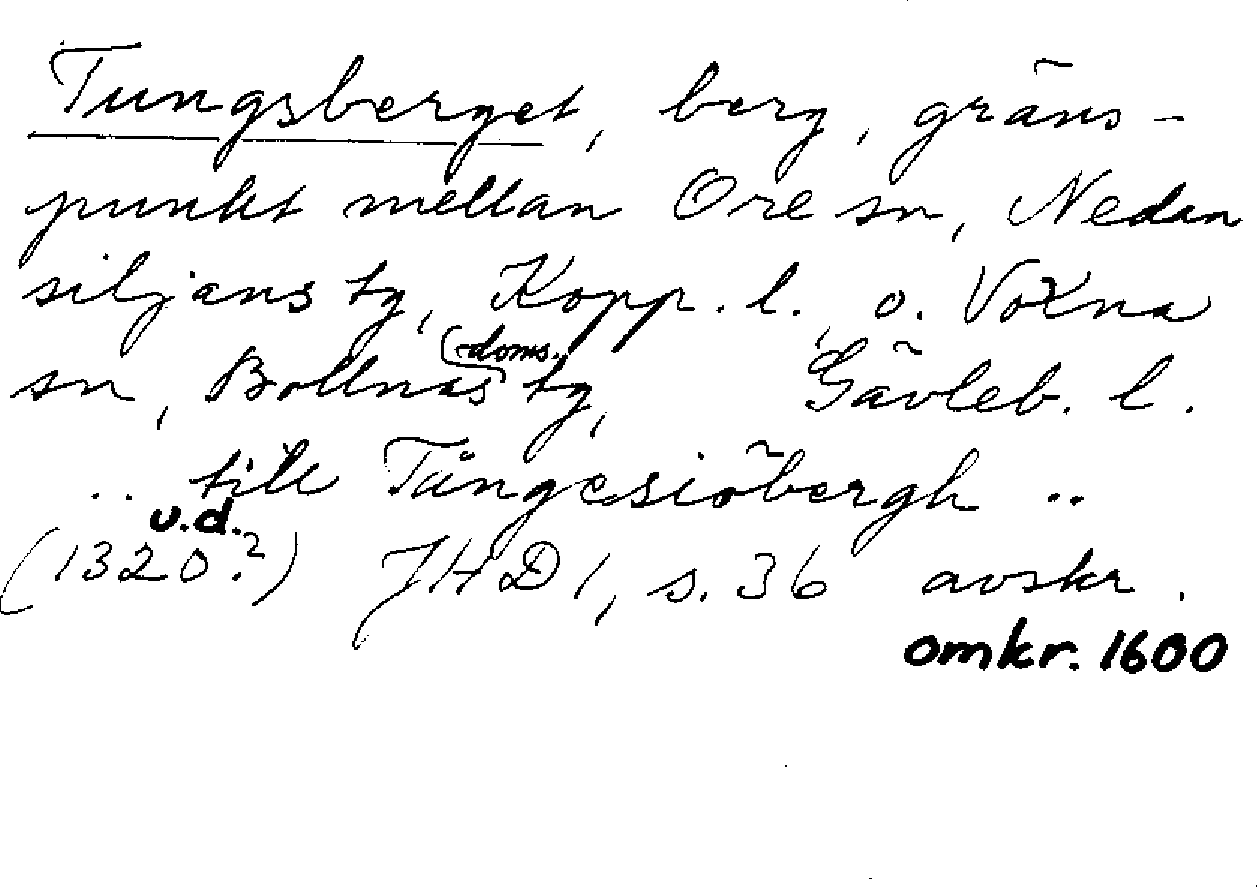 Tungsberget, berg, gräns-
punkt mellan Ore sn, Nedan
siljans tg, Kopp. l., o. Voxna
sn, Bollnäs (-doms.) tg, Gävleb. l.
.. till Tångesiöbergh ..
(1320?) u.d. JHD 1, s. 36 avskr.
omkr. 1600